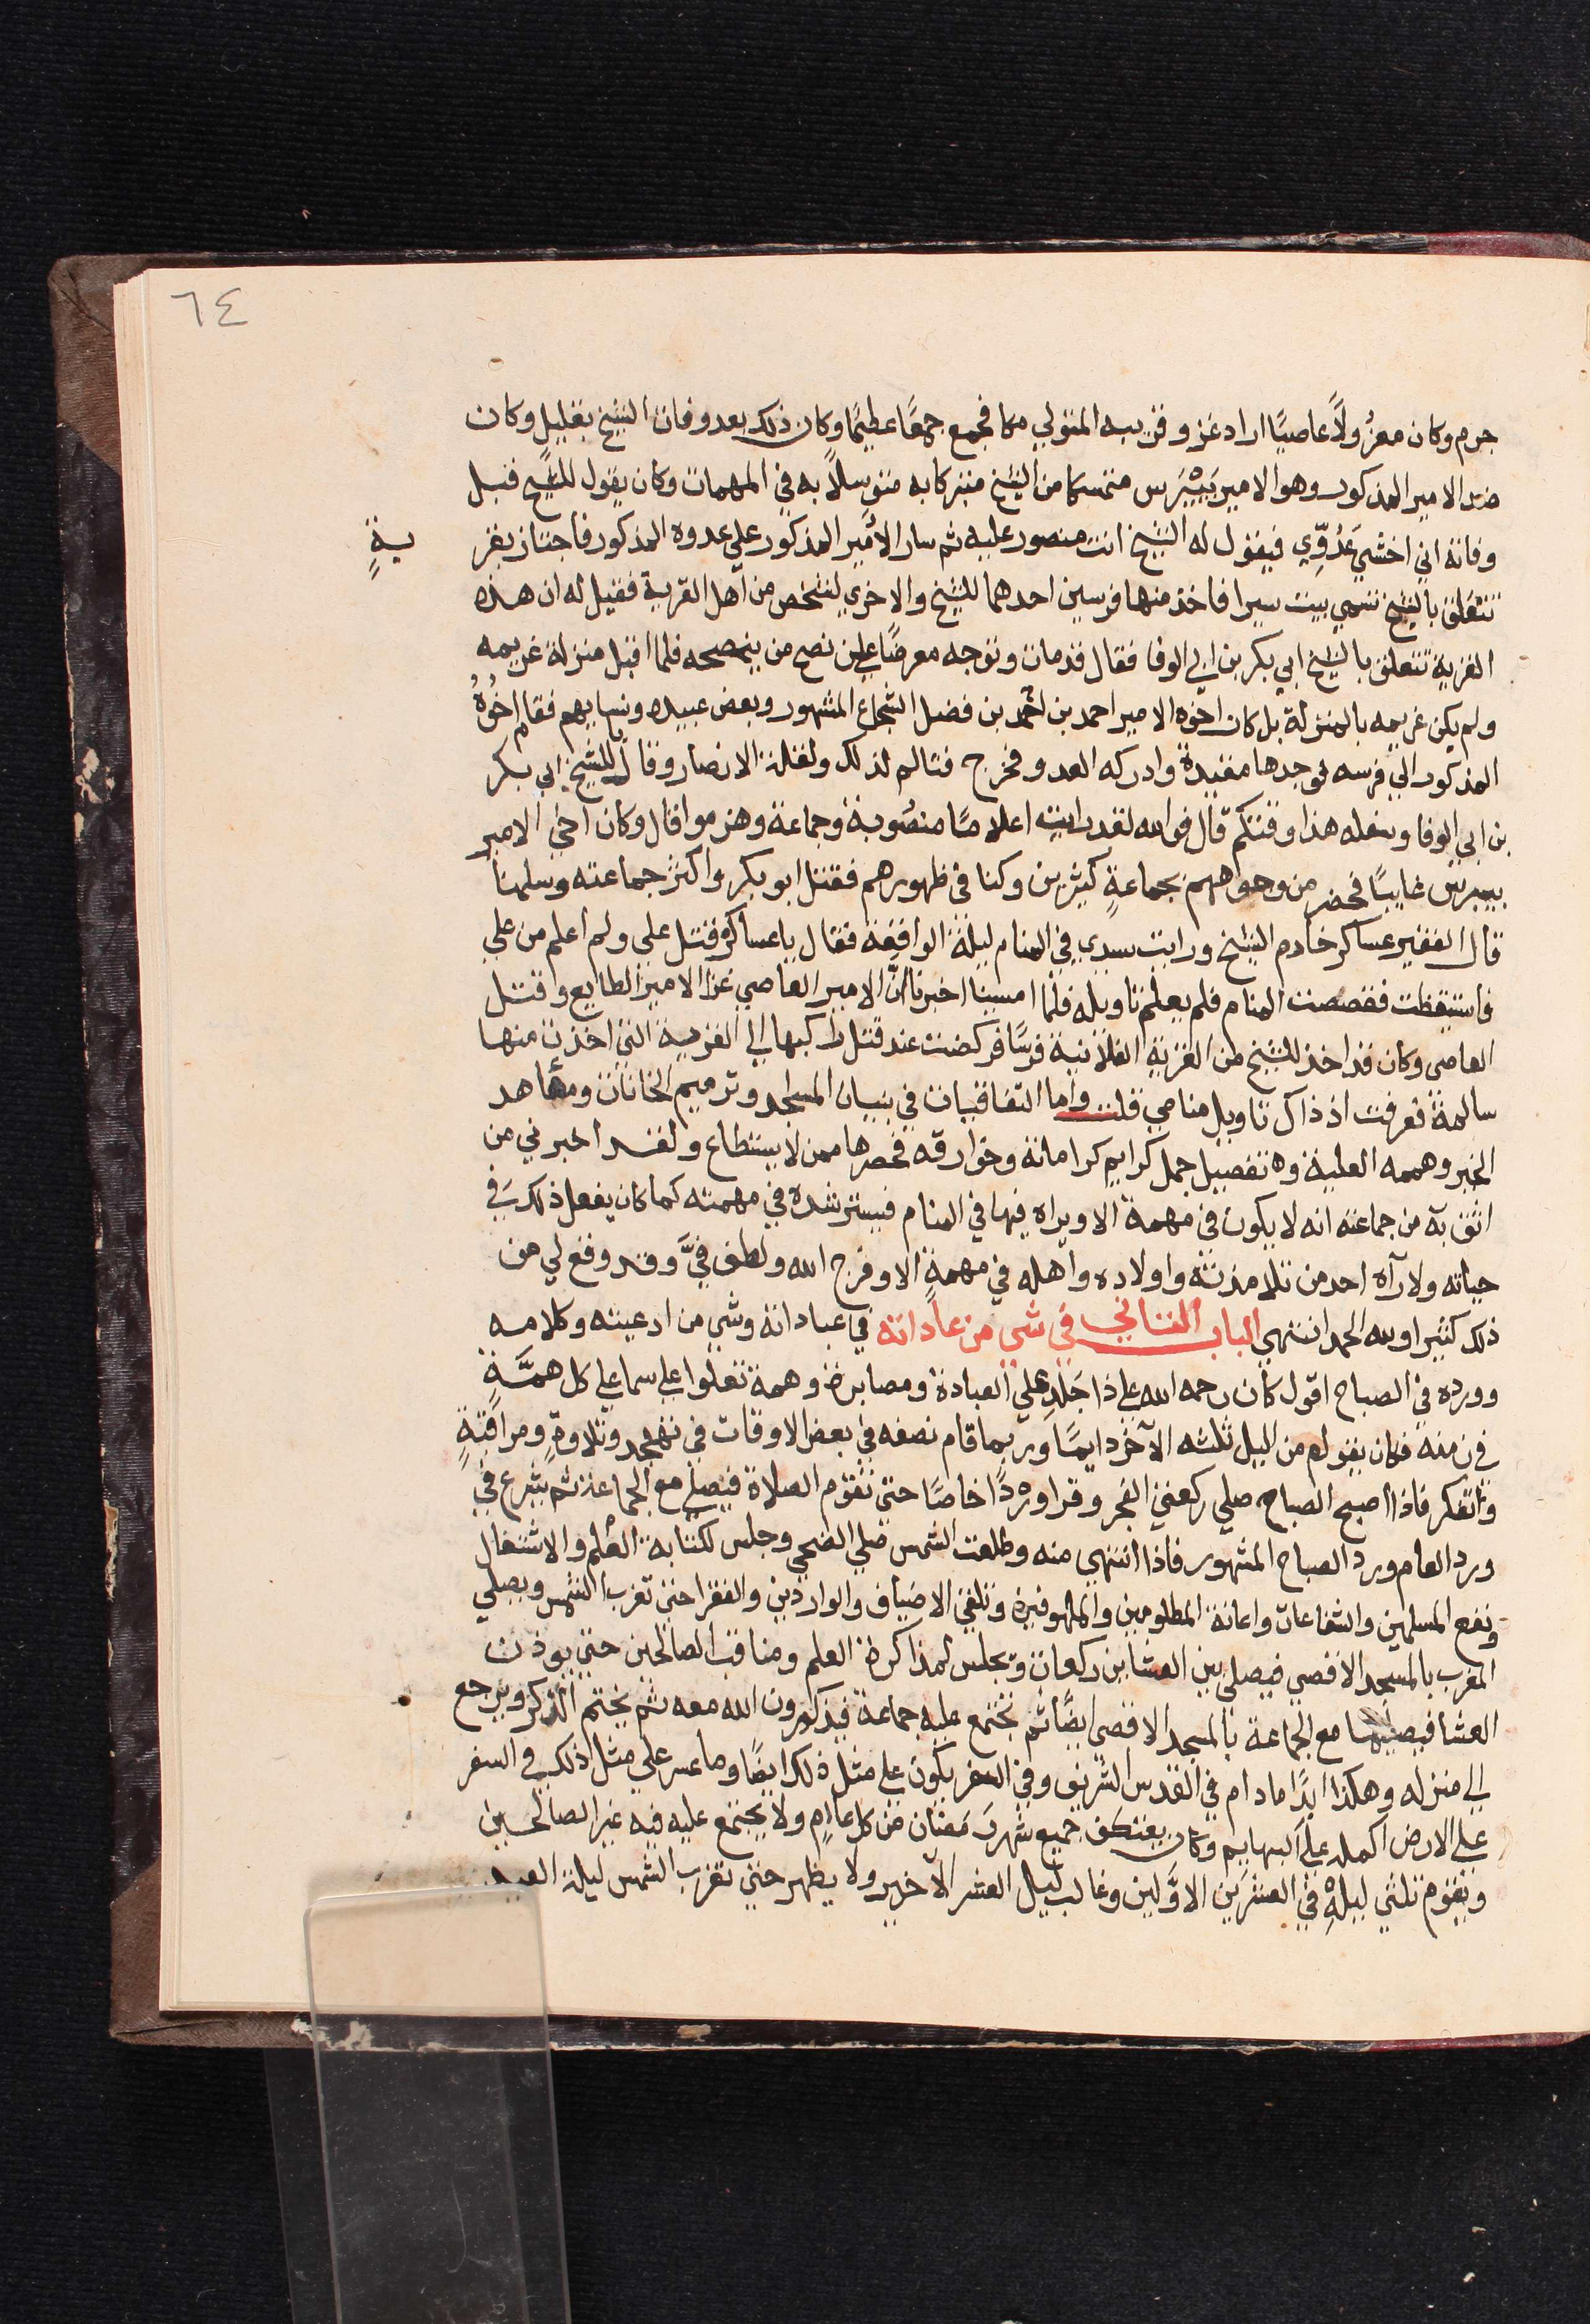 ٦٤
جرم وكان معزُولًا عاصيًا اراد غزو قريبه المتولي مكا فجمع جمعًا عظيمًا وكان ذلك بعد وفات الشيخ بقليلٍ وكان
ضد الامير المذكور وهو الامير بَيْبَرس متمسكا من الشيخ متبركا به متوسلًا به في المهمات وكان يقول للشيخ قبل
وفاته اني اخشي عَدُوِّي فيقول له الشيخ انت منصور عليه ثم سار الامير المذكور علي عدوه المذكور فاجتاز بقر يةٍ
تتعلق بالشيخ تسمي بيت سيرا فاخذ منها فرسين احدهما للشيخ والاخري لشخص من اهل القرية فقيل له ان هذه
القرية تتعلق بالشيخ ابي بكر بن ابي الوفا فقال قد مات وتوجه معرضًا علي نصح من ينصحه فلما اقبل منزلة غريمه
ولم يكن غريمه بالمنزلة بل كان اخوه الامير احمد بن احمد بن فضل الشجاع المشهور وبعض عبيده ونسايهم فقام اخُوهُ
المذكور الي فرسه فوجدها مقيدة وادركه العدو فخرج فتالم لذلك ولقلة الانصار وقال للشيخ ابي بكر
بن ابي الوفا وبعله هذا وقتكم قال فوالله لقد رايت اعلامًا منصُوبة وجماعة وهزموا قال وكان اخي الامير
بيبرس غايبًا فحضر من وجواههم بجماعةٍ كثيرين وكنا في ظهورهم فقتل ابو بكر واكثر جماعته وسلمنا
قال الفقير عساكر خادم الشيخ ورايت سيدي في المنام ليلة الواقعة فقال يا عساكر قتل علي ولم اعلم من علي
فاستيقظت فقصصت المنام فلم يعلم تاويله فلما امسينا اخبرنا انَّ الامير العاصي غزا الامير الطايع وقتل
العاصي وكان قد اخذ للشيخ من القرية الفلانية فرسًا فركضت عند قتل راكبها الي القرية التي اخذت منها
سالمة فعرفت اذ ذاك تاويل منامي قلت واما التفاقيات في بنيان المساجد وترميم الخانات ومشاهد
الخير وهممه العلية وتفصيل جمل كرايم كراماته وخوارقه فحصرها ممن لا يستطاع ولقد اخبرني من
اثق به من جماعته انه لا يكون في مهمة الا ويراه فيها في المنام فيسترشده في مهمته كما كان يفعل ذلك في
حياته ولا رآه احد من تلامذته واولاده واهله في مهمةٍ الا وفرج الله ولطف فيَّ وقد وقع لي من
ذلك كثيرا ولله الحمد انتهي الباب الثاني في شي من عاداته في عباداته وشي من ادعيته وكلامه
وورده في الصباح اقول كان رحمه الله علي ذا جَلَدٍ علي العبادة ومصابرة وهمة تعلوا علي سما علي كل همَّةٍ
في زمنه فكان يقوم من الليل ثلثه الآخر دايمًا وربما قام نصفه في بعض الاوقات في تهجد وتلاوةٍ ومراقبةٍ
وتفكر فاذا اصبح الصباح صلي ركعتي الفجر وقرا وردًا خاصًا حتي تقوم الصلاة فيصلي مع الجماعة ثم يشرع في
ورد العام ورد الصباح المشهور فاذا انتهي منه وطلعت الشمس صلي الضحي وجلس لكتابة العلم والاشتغال
ونفع المسلمين والشفاعات واعانة المظلومين والملهوفين وتلقي الاضياف والواردين والفقرا حتي تغرب الشمس ويصلي
المغرب بالمسجد الاقصي فيصلي بين العشاين ركعات ويجلس لمذاكرة العلم ومناقب الصالحين حتي يوذن
العشا فيصليها مع الجماعة بالمسجد الاقصي ايضًا ثم تجتمع عليه جماعة فيذكرون الله معه ثم يختم الذكر ويرجع
الي منزله وهكذا ابدًا مادام في القدس الشريف وفي السفر يكون علي مثل ذلك ايضًا وما عسر علي مثل ذلك في السفر
علي الارض اكمله علي البهايم وكان يعتكف جميع شهر رمضان من كل عامٍ ولا يجتمع عليه فيه غير الصالحين
ويقوم ثلثي ليله في العشرين الاوَّلين وغالب ليل العشر الآخير ولا يظهر حتي تغرب الشمس ليلة العيد